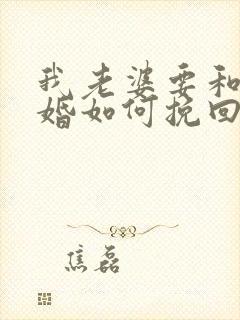 我老婆要和
婚如何挽回
焦磊